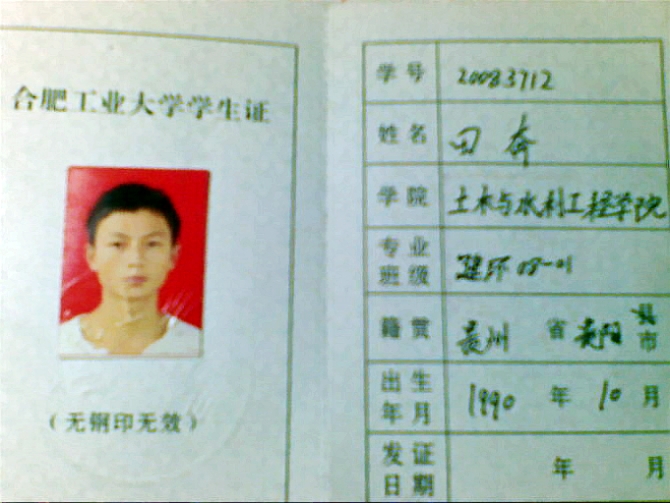 合肥工业大学学生证
(无钢印无效)
学号 20083712
姓名 田奔
学院 土木与水利工程学院
专业班级 建环08-01
籍贯 贵州 省 贵阳 县市
出生年月 1990 年 10 月
发证日期 年 月